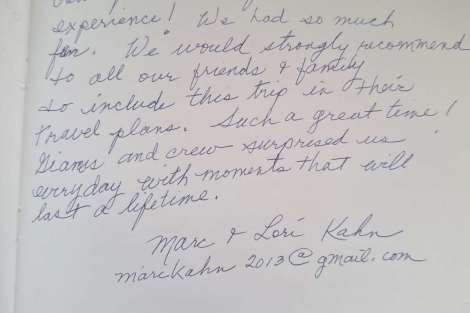 experience! We had so much
fun. We would strongly recommend
to all our friends & family
to include this trip in their
travel plans. Such a great time!
and crew surprised us
everyday with moments that will
last a lifetime.
Marc & Lori Kahn
marckahn2013@gmail.com